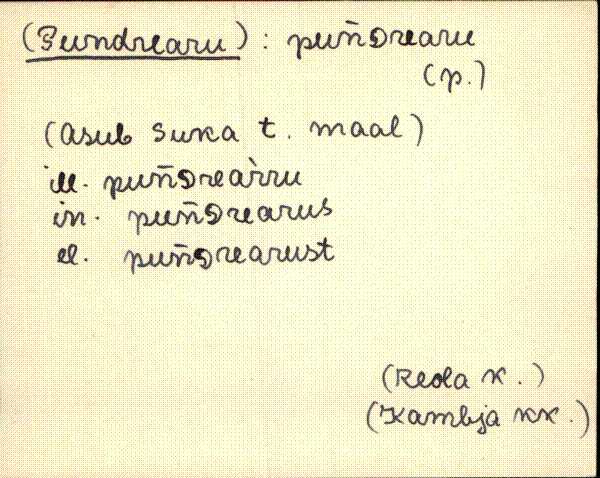 (Pundrearu) : puñᴅrearu
(p.)
(asub Suka t. maal)
ill. puñᴅreàrru
in. puñᴅrearus
el. puñᴅrearust
(Reola k.)
(Kambja kk.)